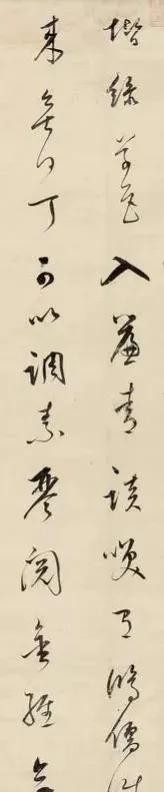 堦綠草色入簾青談咲有鴻儒
來無白丁可以調素琴閱金經